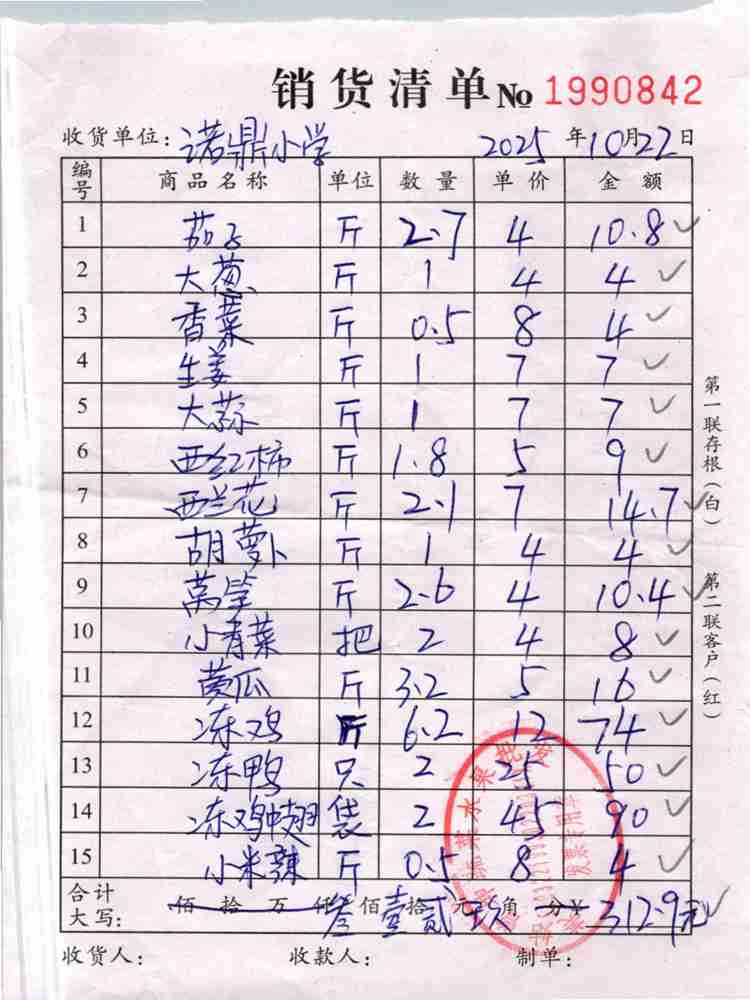 销货清单 № 1990842
收货单位：诺鼎小学 2025 年 10 月 22 日
编号 商品名称 单位 数量 单价 金额
1 茄子 斤 2.7 4 10.8 ✓
2 大葱 斤 1 4 4 ✓
3 香菜 斤 0.5 8 4 ✓
4 生姜 斤 1 7 7 ✓
5 大蒜 斤 1 7 7 ✓
6 西红柿 斤 1.8 5 9 ✓
7 西兰花 斤 2.1 7 14.7 ✓
8 胡萝卜 斤 1 4 4 ✓
9 莴笋 斤 2.6 4 10.4 ✓
10 小青菜 把 2 4 8 ✓
11 黄瓜 斤 3.2 5 16 ✓
12 冻鸡 斤 6.2 12 74 ✓
13 冻鸭 只 2 25 50 ✓
14 冻鸡中翅 袋 2 45 90 ✓
15 小米辣 斤 0.5 8 4 ✓
合计大写： 佰 拾 万 仟 叁 佰 壹 拾 贰 元 玖 角 分 ¥ 312.9元 ✓
收货人： 收款人： 制单：
第一联存根（白）
第二联客户（红）
蔬菜水果批发
发票专用章